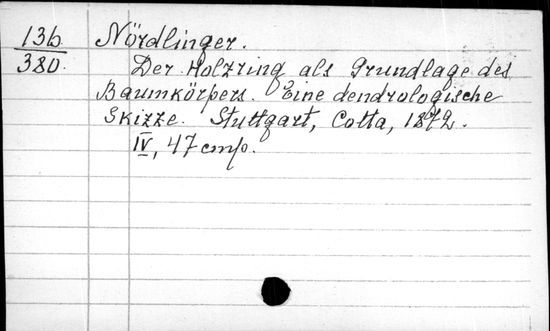 136 Nördlinger.
380. Der Holzring als Grundlage des
Baumkörpers. Eine dendrologische
Skizze. Stuttgart, Cotta, 1872.
IV, 47 стр.